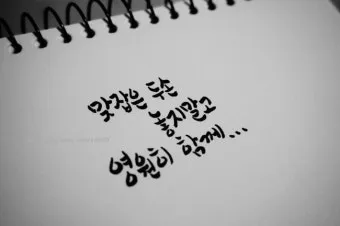 맞잡은 두손
놓지말고
영원히 함께...